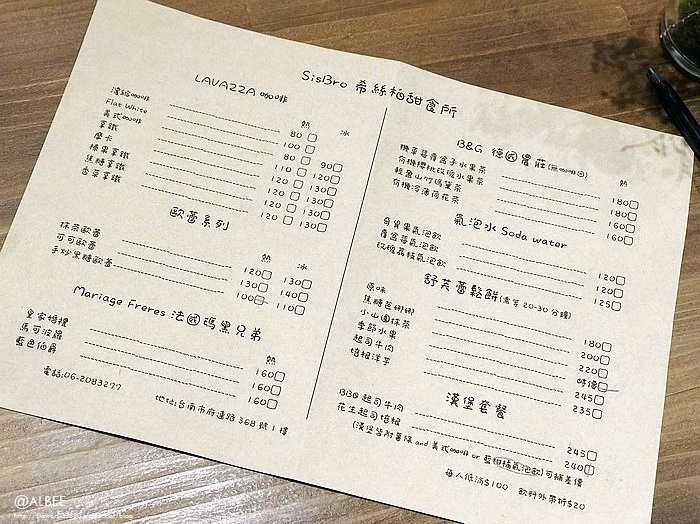 SisBro 希絲柏甜食所
LAVAZZA 咖啡
熱 冰
濃縮咖啡 80
Flat White 100
美式咖啡 80 90
拿鐵 110 120
摩卡 120 130
榛果拿鐵 120 130
焦糖拿鐵 120 130
杏菜拿鐵 120 130
歐蕾系列
熱 冰
抹茶歐蕾 120 130
可可歐蕾 130 140
手炒黑糖歐蕾 100 110
Mariage Freres 法國瑪黑兄弟
熱
皇家婚禮 160
馬可波羅 160
藍色伯爵 160
電話:06-2083277
地址:台南市府連路368號1樓
B&G 德國農莊(無咖啡因)
熱
機草莓覆盆子水果茶 180
有機櫻桃玫瑰水果茶 180
輕盈山竹瑪黛茶 160
有機冷薄荷花茶 160
氣泡水 Soda water
奇異果氣泡飲 120
覆盆莓氣泡飲 120
玫瑰荔枝氣泡飲 125
舒芙蕾鬆餅(需等20-30分鐘)
原味 180
焦糖芭娜娜 200
小山園抹茶 220
季節水果 時價
起司牛肉 245
培根洋芋 235
漢堡套餐
BBQ 起司牛肉 245
花生起司培根 240
(漢堡皆附薯條 and 美式咖啡 or 藍柑橘氣泡飲)可補差價
每人低消$100 飲料外帶折$20
@ALBEE